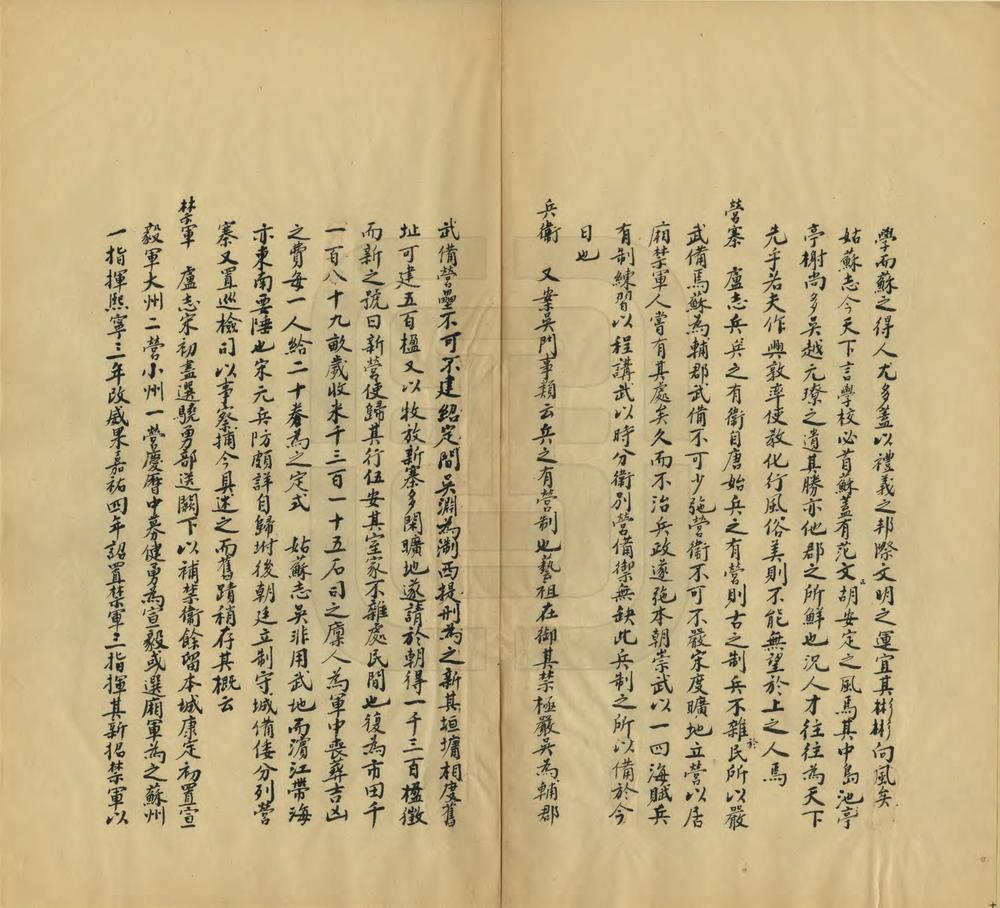 學而蘇之得人尤多蓋以禮義之邦際文明之運宜其彬彬向風矣
姑蘇志今天下言學校必首蘇蓋有范文正胡安定之風焉其中島池亭
亭榭尚多吳越元璙之遺其勝亦他郡之所鮮也況人才往往為天下
先乎若夫作興敦率使教化行風俗美則不能無望於上之人焉
營寨 盧志兵兵之有衛自唐始兵之有營則古之制兵不雜於民所以嚴
武備焉蘇為輔郡武備不可少弛營衛不可不嚴宋度曠地立營以居
廂禁軍人嘗有其處矣久而不治兵政遂弛本朝崇武以一四海賦兵
有制練習以程講武以時分衛別營備禦無缺此兵制之所以備於今
日也
兵衛 又案吳門事類云兵之有營制也藝祖在御其禁極嚴吳為輔郡
武備營壘不可不建紹定間吳淵為浙西提刑為之新其垣墉相度舊
址可建五百楹又以牧放新寨多閑曠地遂請於朝得一千三百楹徵
而新之號曰新營使歸其行伍安其室家不雜處民間也復為市田千
一百八十九畝歲收米千三百一十五石司之廩人為軍中喪葬吉凶
之費每一人給二十券為之定式 姑蘇志吳非用武地而濱江帶海
亦東南要陲也宋元兵防頗詳自歸坿後朝廷立制守城備倭分列營
寨又置巡檢司以事察捕今具述之而舊蹟稍存其概云
禁軍 盧志宋初盡選驍勇部送闕下以補禁衛餘留本城康定初置宣
毅軍大州二營小州一營慶曆中募健勇為宣毅或選廂軍為之蘇州
一指揮熙寧三年改威果嘉祐四年詔置禁軍三指揮其新招禁軍以